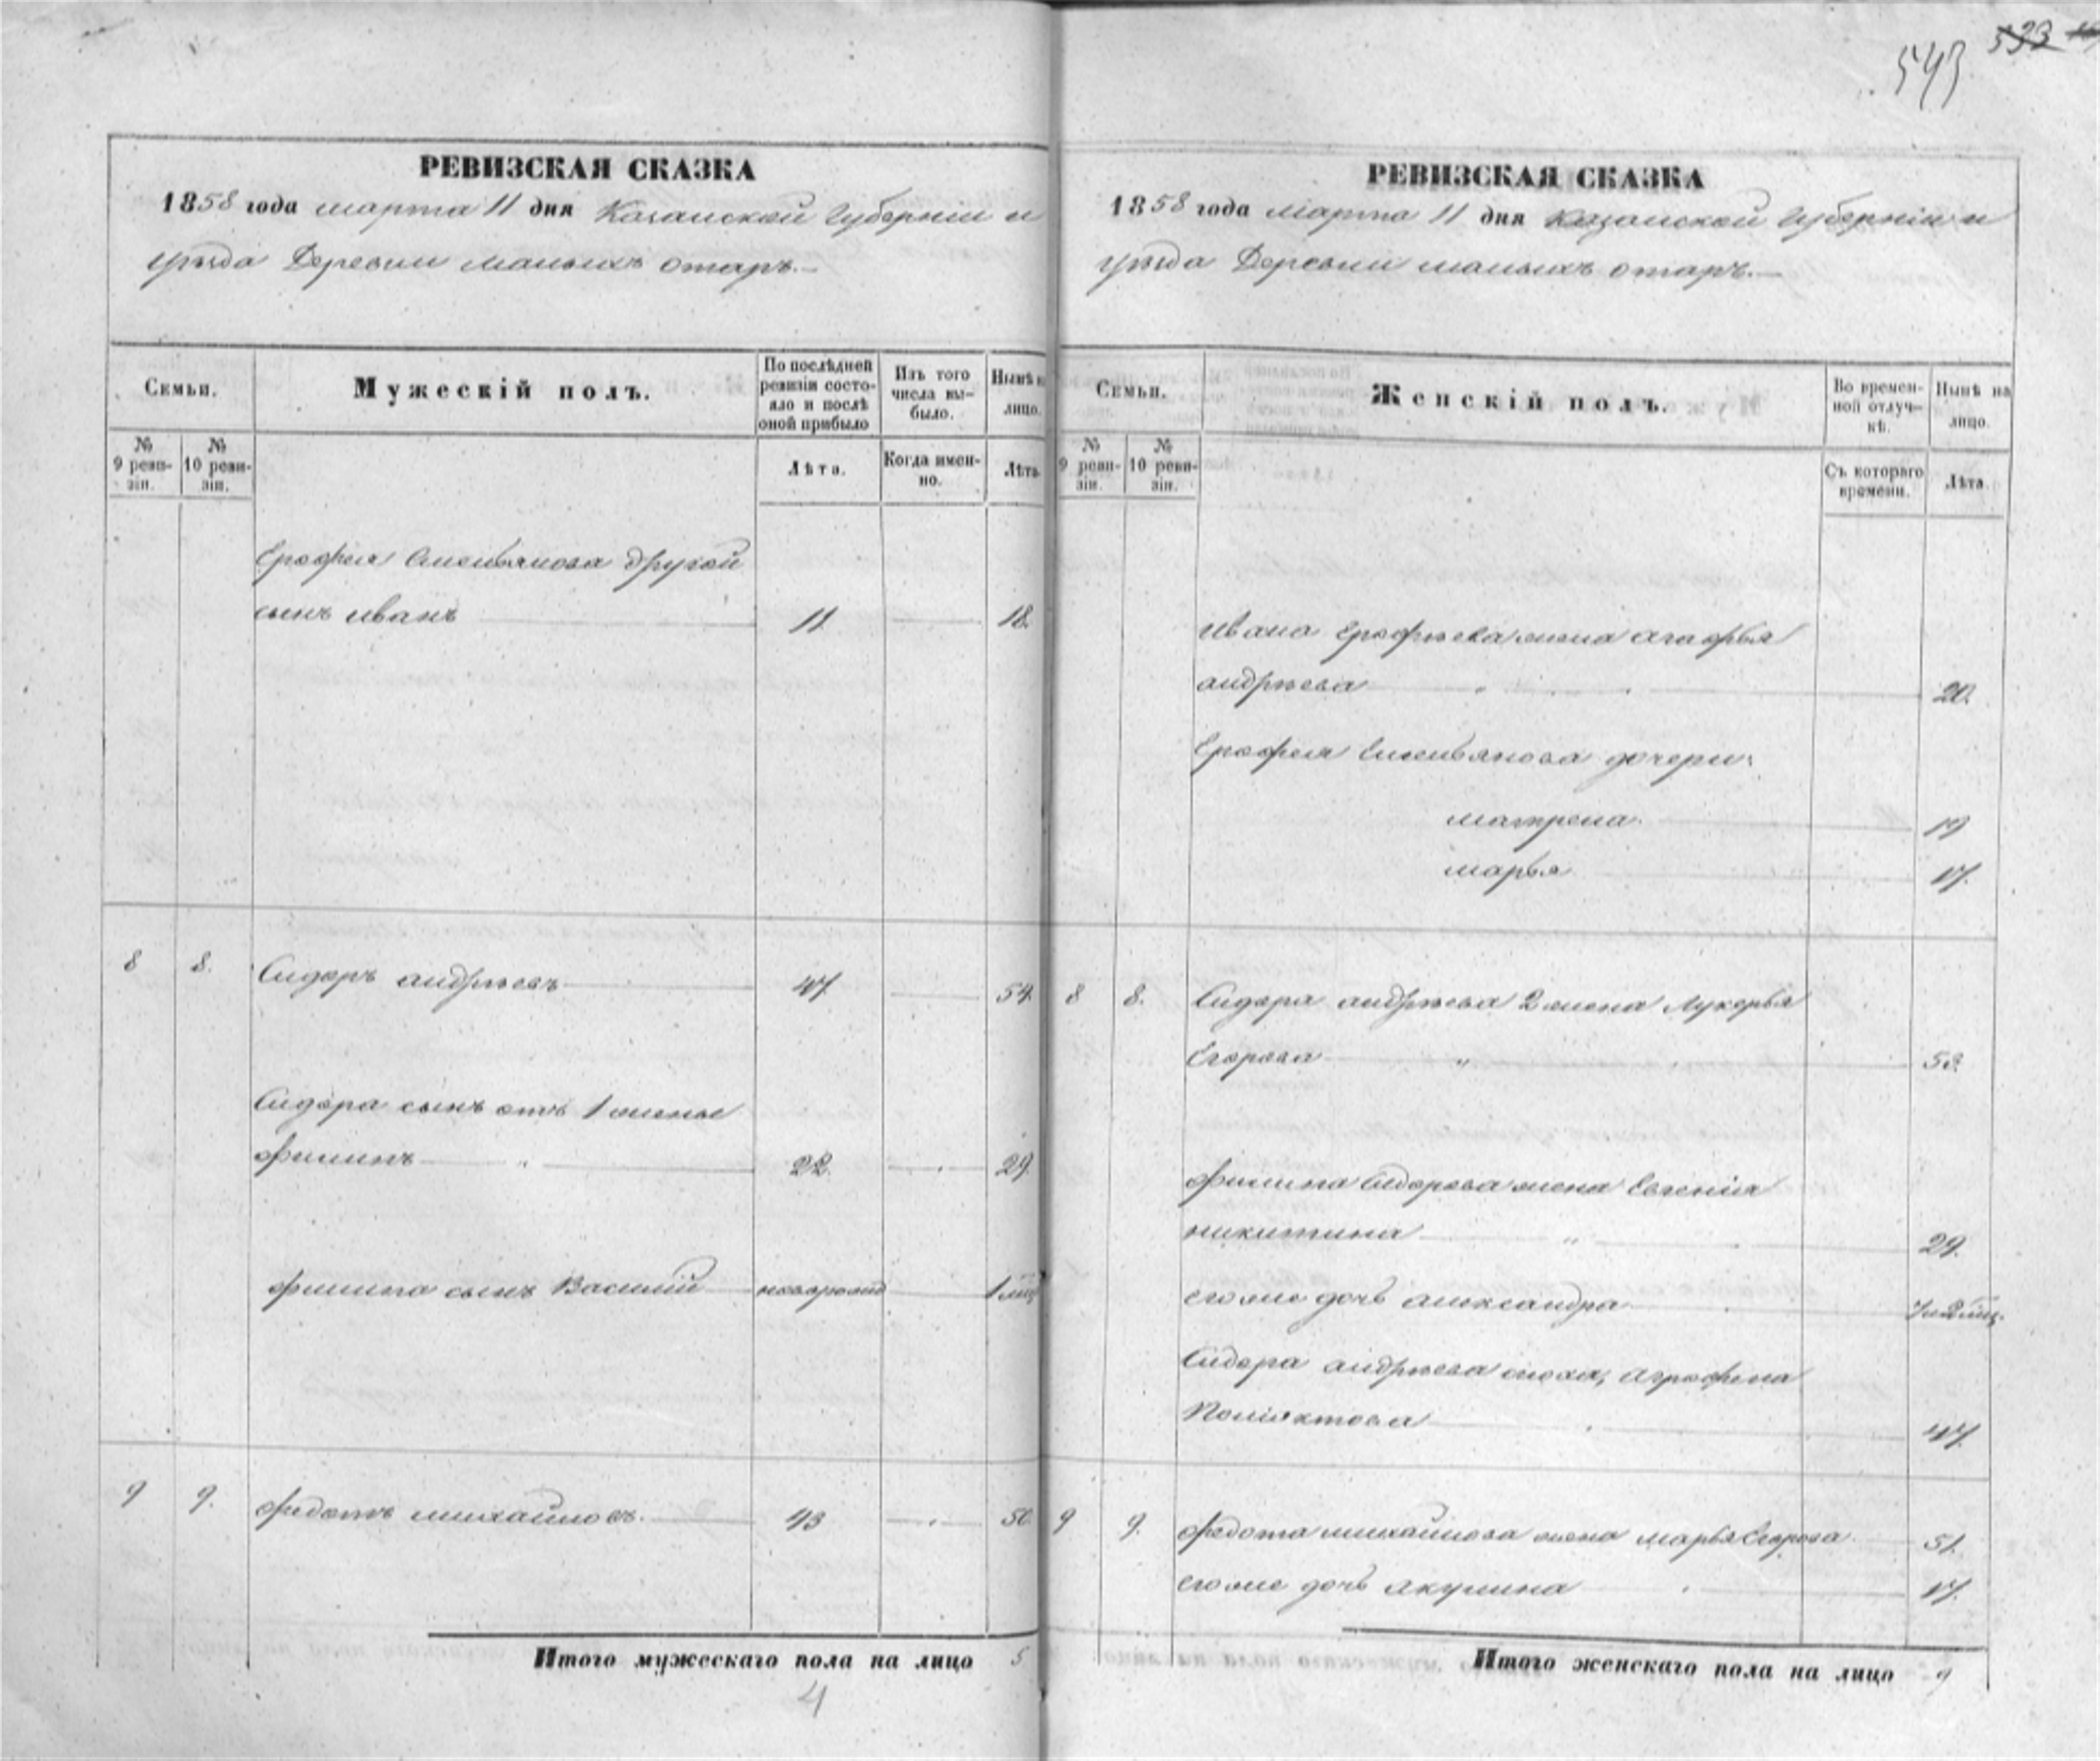 543 533
РЕВИЗСКАЯ СКАЗКА
1858 года марта 11 дня Казанской Губерніи и
уѣзда Деревни малыхъ отаръ.
Семьи.
Мужескій полъ.
По послѣдней ревизіи состояло и послѣ оной прибыло
Изъ того числа выбыло.
Нынѣ на лицо.
№ 9 ревизіи.
№ 10 ревизіи.
Лѣта.
Когда именно.
Лѣта
Ерофея Емельянова другой
сынъ иванъ 11. 18.
8 8. Сидоръ андрѣевъ 47. 54.
Сидора сынъ отъ 1 жены
филипъ 22. 29.
филипа сынъ Василій новорожд 1 мѣс
9 9. федотъ михайловъ. 43 50
Итого мужескаго пола на лицо 5
4
РЕВИЗСКАЯ СКАЗКА
1858 года марта 11 дня Казанской Губерніи и
уѣзда Деревни малыхъ отаръ.
Семьи.
Женскій полъ.
Во временной отлучкѣ.
Нынѣ на лицо.
№ 9 ревизіи.
№ 10 ревизіи.
Съ котораго времени.
Лѣта
ивана Ерофѣева жена агафья
андрѣева 20.
Ерофея Емельянова дочери:
матрена. 19
марья 17.
8 8. Сидора андрѣева 2 жена Лукерья
Егорова 53.
филипа Сидорова жена Евгенія
никитина 29.
его же дочь александра
Сидора андрѣева сноха, аграфена
Поліяктова 47.
9 9. федота михайлова жена марья Егорова 51.
его же дочь акулина 17.
Итого женскаго пола на лицо 9